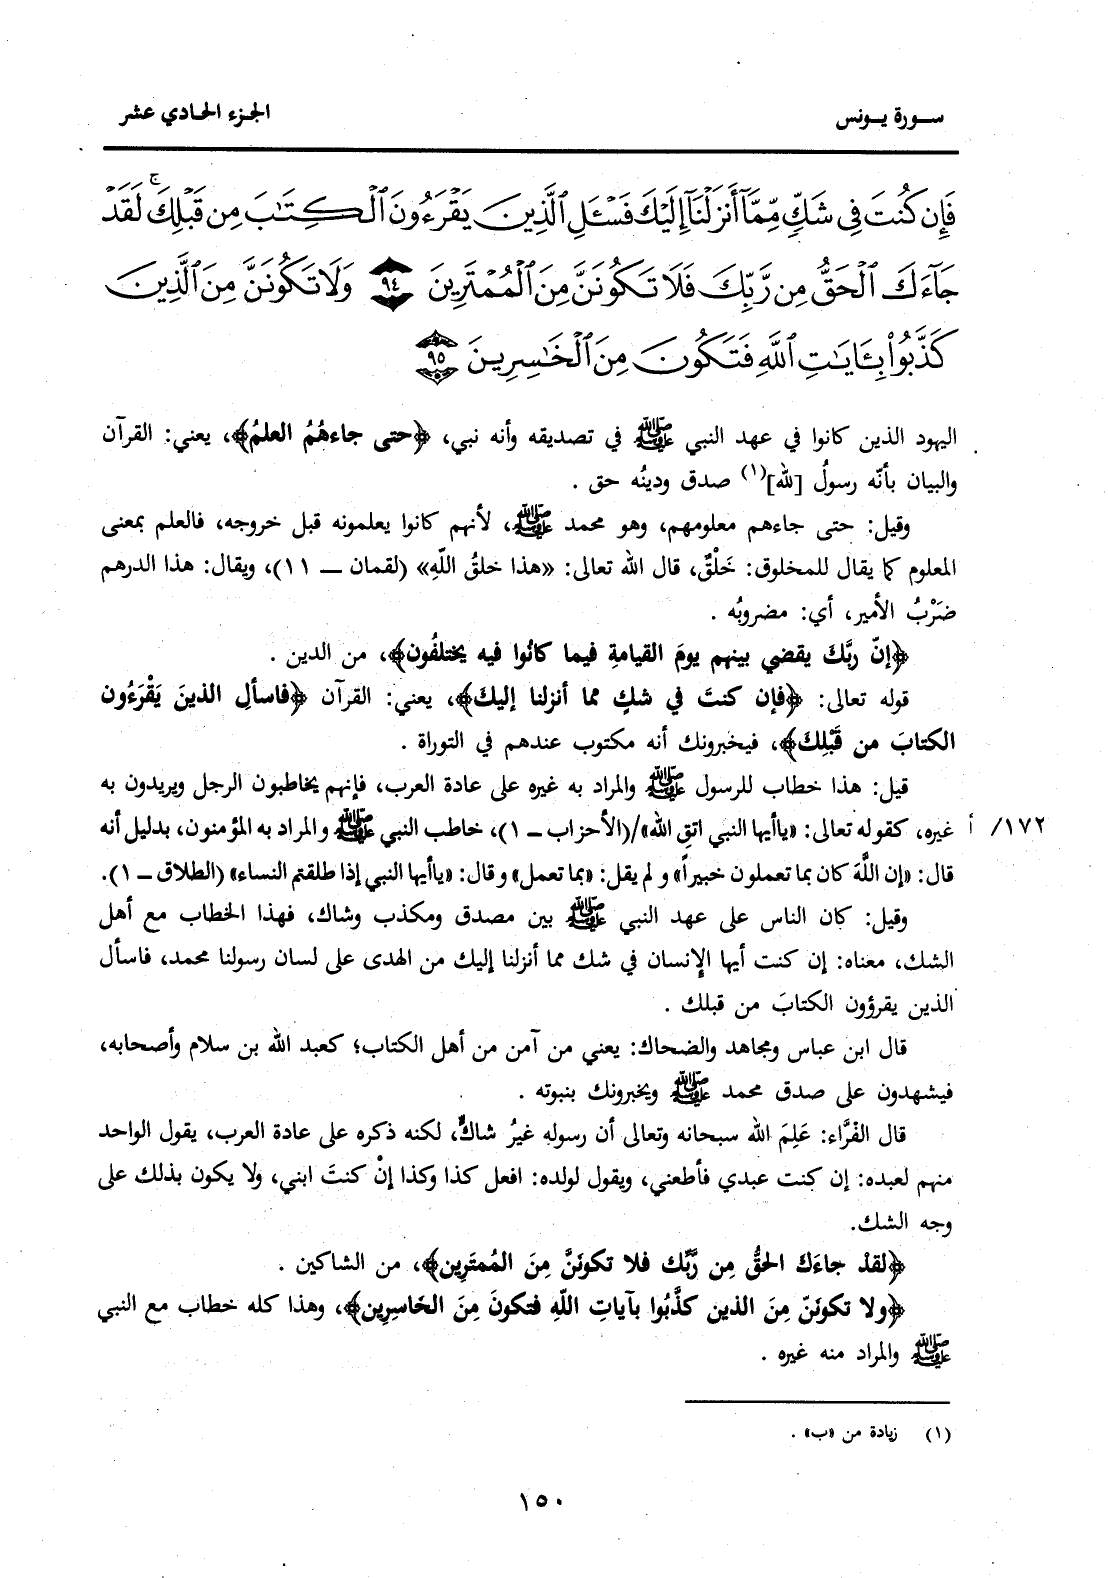 سورة يونس
الجزء الحادي عشر
فَإِن كُنتَ فِى شَكٍّ مِّمَّآ أَنزَلْنَآ إِلَيْكَ فَسْـَٔلِ ٱلَّذِينَ يَقْرَءُونَ ٱلْكِتَٰبَ مِن قَبْلِكَ ۚ لَقَدْ
جَآءَكَ ٱلْحَقُّ مِن رَّبِّكَ فَلَا تَكُونَنَّ مِنَ ٱلْمُمْتَرِينَ ٩٤ وَلَا تَكُونَنَّ مِنَ ٱلَّذِينَ
كَذَّبُوا۟ بِـَٔايَٰتِ ٱللَّهِ فَتَكُونَ مِنَ ٱلْخَٰسِرِينَ ٩٥
اليهود الذين كانوا في عهد النبي ﷺ في تصديقه وأنه نبي، ﴿حتى جاءهُمُ العلمُ﴾، يعني: القرآن
والبيان بأنّه رسولُ [لله](١) صدق ودينُه حق .
وقيل: حتى جاءهم معلومهم، وهو محمد ﷺ، لأنهم كانوا يعلمونه قبل خروجه، فالعلم بمعنى
المعلوم كما يقال للمخلوق: خَلْقٌ، قال الله تعالى: «هذا خلقُ اللّهِ» (لقمان ــ ١١)، ويقال: هذا الدرهم
ضَرْبُ الأمير، أي: مضروبُه .
﴿إنّ ربَّكَ يقضي بينهم يومَ القيامةِ فيما كانُوا فيه يختلفُون﴾، من الدين .
قوله تعالى: ﴿فإن كنتَ في شكٍ مما أنزلنا إليكَ﴾، يعني: القرآن ﴿فاسألِ الذينَ يَقْرَءُون
الكتابَ من قَبْلِكَ﴾، فيخبرونك أنه مكتوب عندهم في التوراة .
قيل: هذا خطاب للرسول ﷺ والمراد به غيره على عادة العرب، فإنهم يخاطبون الرجل ويريدون به
١٧٢/ أ غيره، كقوله تعالى: «ياأيها النبي اتقِ الله»/(الأحزاب ــ ١)، خاطب النبي ﷺ والمراد به المؤمنون، بدليل أنه
قال: «إن اللَّهَ كان بما تعملون خبيراً» و لم يقل: «بما تعمل» و قال: «ياأيها النبي إذا طلقتم النساء» (الطلاق ــ ١).
وقيل: كان الناس على عهد النبي ﷺ بين مصدق ومكذب وشاك، فهذا الخطاب مع أهل
الشك، معناه: إن كنت أيها الإِنسان في شك مما أنزلنا إليك من الهدى على لسان رسولنا محمد، فاسأل
الذين يقرؤون الكتابَ من قبلك .
قال ابن عباس ومجاهد والضحاك: يعني من آمن من أهل الكتاب؛ كعبد الله بن سلام وأصحابه،
فيشهدون على صدق محمد ﷺ ويخبرونك بنبوته .
قال الفَرَّاء: عَلِمَ الله سبحانه وتعالى أن رسوله غيرُ شاكٍّ، لكنه ذكره على عادة العرب، يقول الواحد
منهم لعبده: إن كنت عبدي فأطعني، ويقول لولده: افعل كذا وكذا إنْ كنتَ ابني، ولا يكون بذلك على
وجه الشك.
﴿لقدْ جاءَكَ الحقُّ مِن رَّبِّك فلا تكونَنَّ مِنَ المُمتَرِين﴾، من الشاكين .
﴿ولا تكونَنّ مِنَ الذين كذَّبُوا بآياتِ اللّهِ فتكونَ مِنَ الخَاسِرِين﴾، وهذا كله خطاب مع النبي
ﷺ والمراد منه غيره .
(١) زيادة من «ب» .
١٥٠